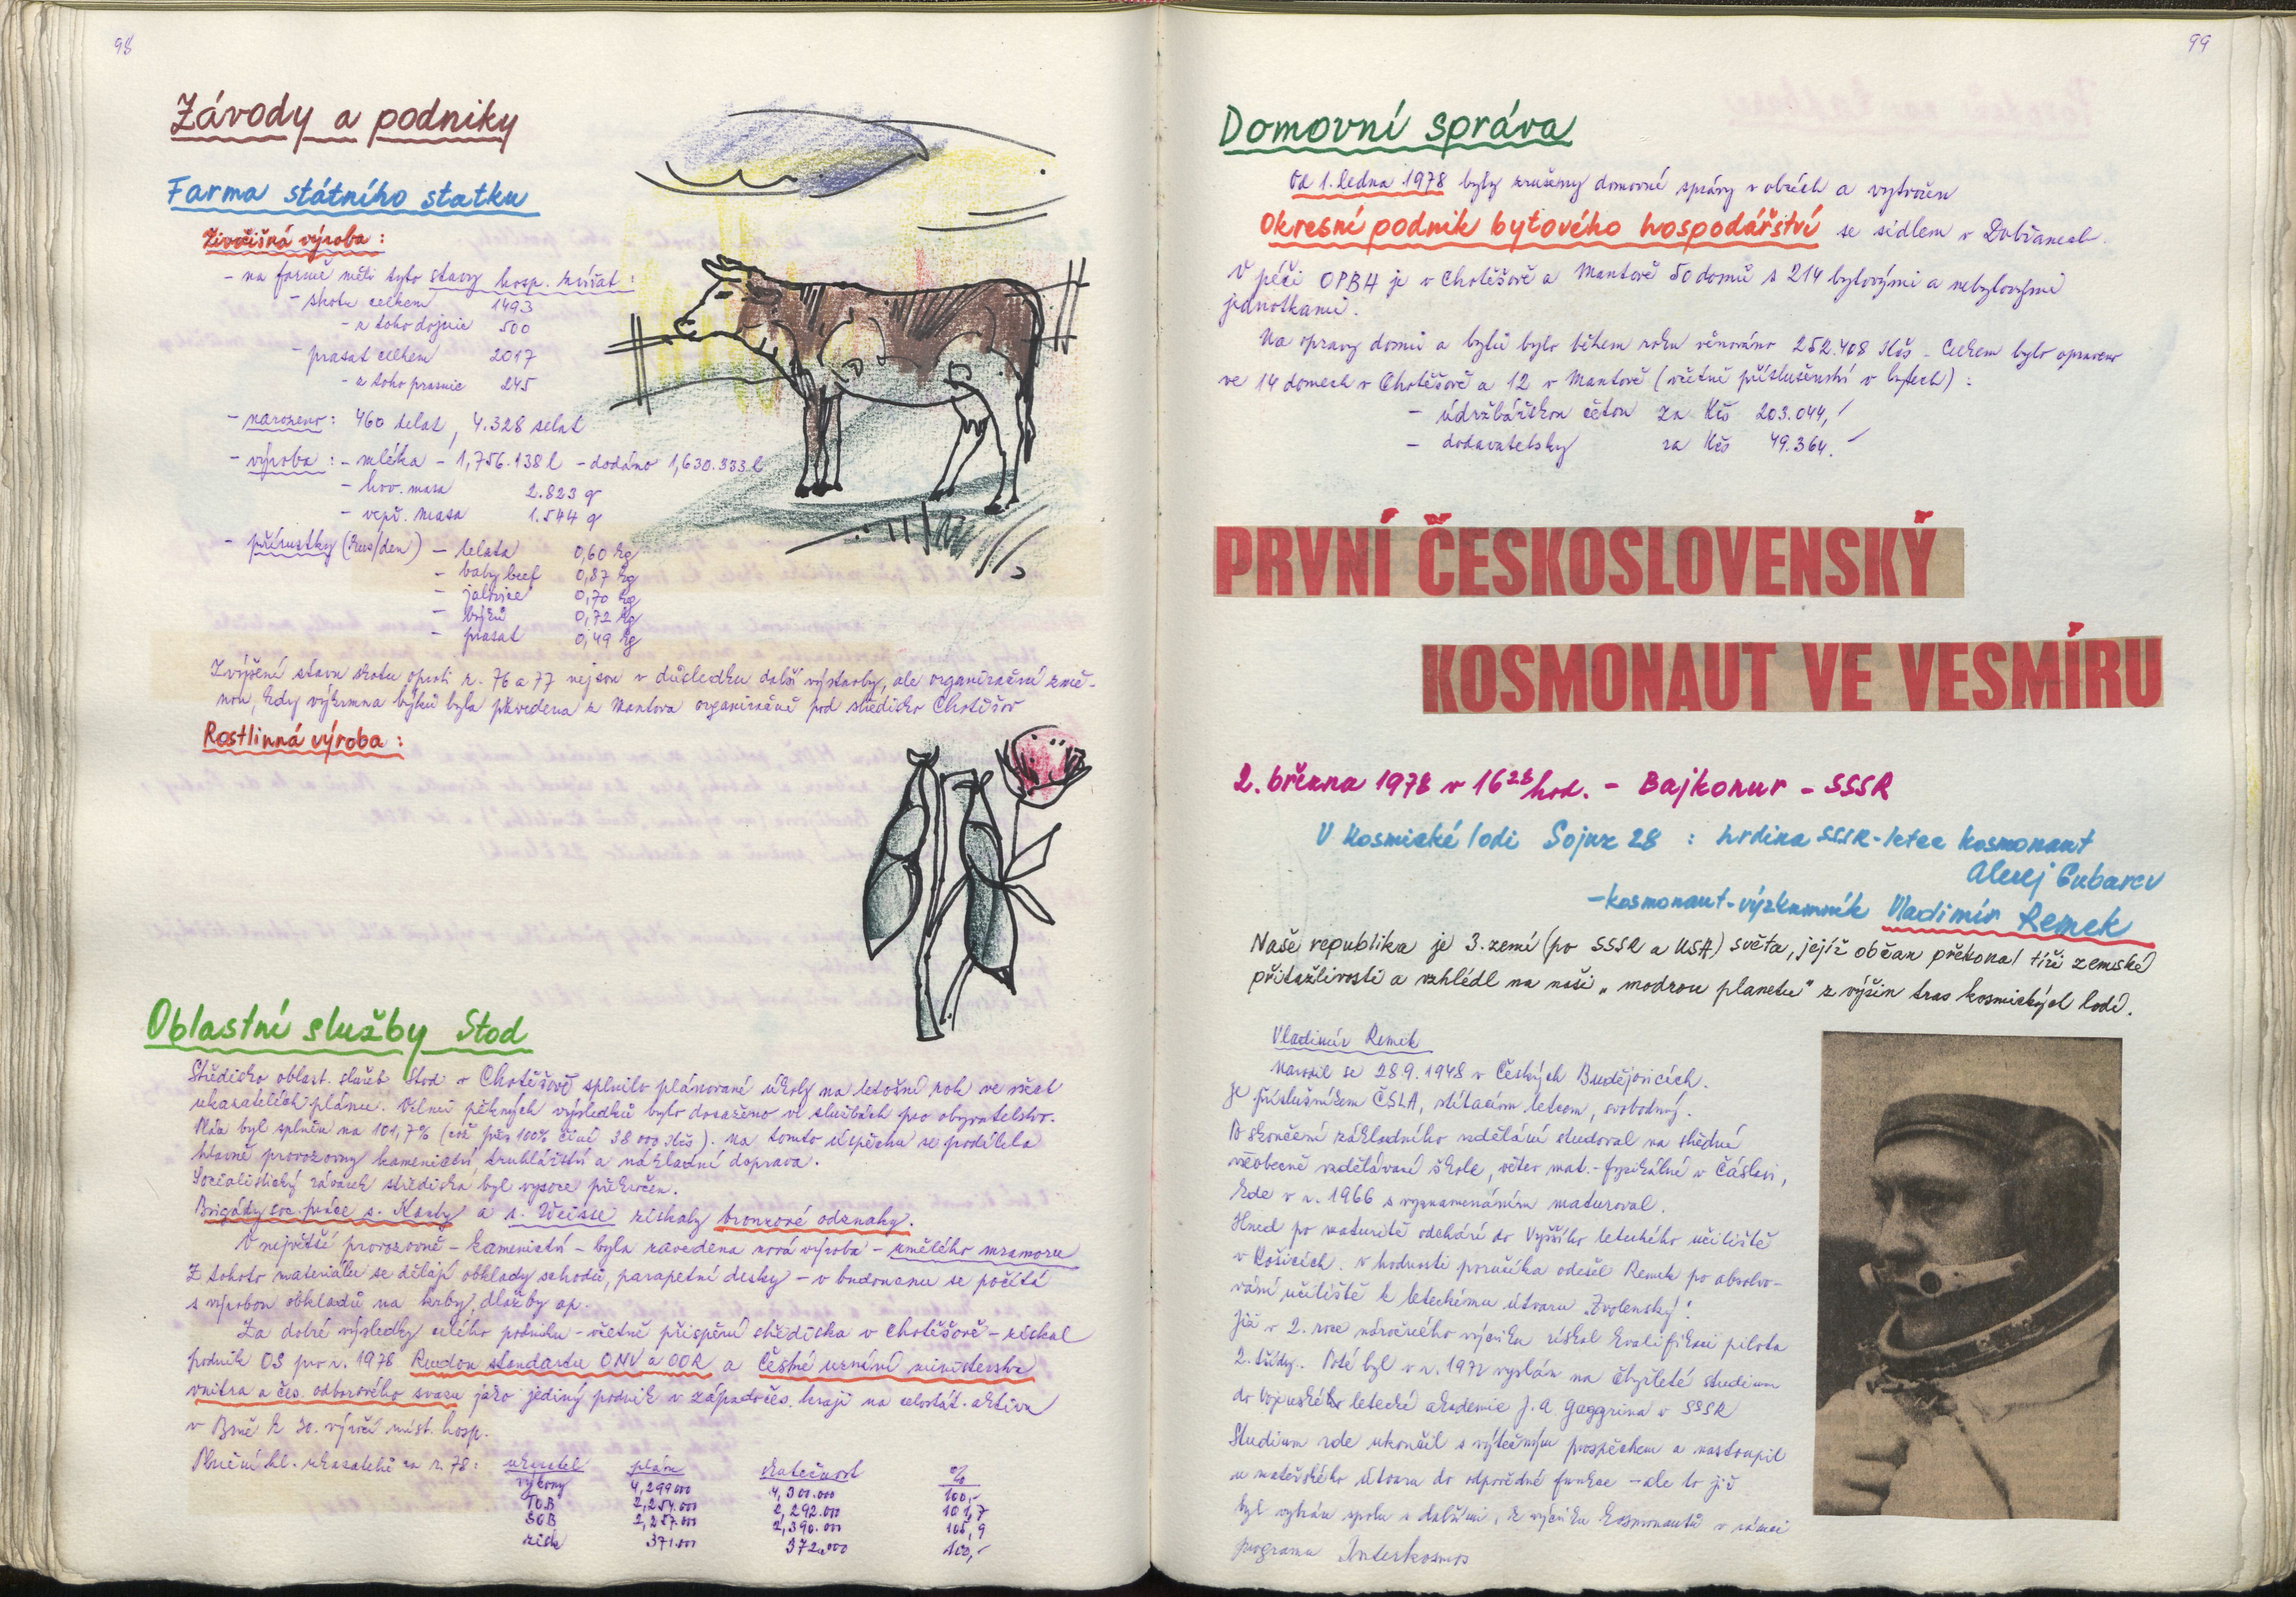 98
Závody a podniky
Farma státního statku
Živočišná výroba:
- na farmě měli tyto stavy hosp. zvířat:
- skotu celkem 1493
- z toho dojnic 500
- prasat celkem 2017
- z toho prasnic 245
- narozeno: 460 telat, 4.328 selat
- výroba: - mléka - 1,756.138 l - dodáno 1,630.333 l
- hov. masa 2.823 q
- vepř. masa 1.544 q
- přírustky (kus/den) - telata 0,60 kg
- baby beef 0,87 kg
- jalovice 0,70 kg
- býků 0,72 kg
- prasat 0,49 kg
Zvýšení stavu skotu oproti r. 76 a 77 nejsou v důsledku další výstavby, ale organizační změ-
nou, kdy výkrmna býků byla převedena z Mantova organizačně pod středisko Chotěšov
Rostlinná výroba:
Oblastní služby Stod
Středisko oblast. služeb Stod v Chotěšově splnilo plánované úkoly na letošní rok ve všech
ukazatelích plánu. Velmi pěkných výsledků bylo dosaženo ve službách pro obyvatelstvo.
Plán byl splněn na 101,7% (což přes 100% činí 38 000 Kčs). Na tomto úspěchu se podílela
hlavně provozovny kamenictví truhlářství a nákladní doprava.
Socialistický závazek střediska byl vysoce překročen.
Brigády soc. práce s. Karly a s. Weisse získaly bronzové odznaky.
V největší provozovně - kamenictví - byla zavedena nová výroba - umělého mramoru
Z tohoto materiálu se dělají obklady schodů, parapetní desky - v budoucnu se počítá
s výrobou obkladů na krby, dlažby ap.
Za dobré výsledky celého podniku - včetně přispění střediska v Chotěšově - získal
podnik OS pro r. 1978 Rudou standartu ONV a OOR a Čestné uznání ministerstva
vnitra a čes. odborového svazu jako jediný podnik v západočes. kraji na celostát. aktivu
v Brně k 30. výročí míst. hosp.
Plnění hl. ukazatelů za r. 78: ukazatel plán skutečnost %
výkony 4,299 000 4,300.000 100,-
TOB 2,254.000 2,292.000 101,7
SOB 2,257.000 2,390.000 105,9
zisk 371.000 372,000 100,-
99
Domovní správa
Od 1. ledna 1978 byly zrušeny domovní správy v obcích a vytvořen
Okresní podnik bytového hospodářství se sídlem v Dobřanech.
V péči OPBH je v Chotěšově a Mantově 50 domů s 214 bytovými a nebytovými
jednotkami.
Na opravy domů a bytů bylo během roku věnováno 252.408 Kčs - Celkem bylo opraveno
ve 14 domech v Chotěšově a 12 v Mantově (včetně příslušenství v bytech):
- údržbářskou četou za Kčs 203.044,-
- dodavatelsky za Kčs 49.364.-
PRVNÍ ČESKOSLOVENSKÝ
KOSMONAUT VE VESMÍRU
2. března 1978 v 16 28 hod. - Bajkonur - SSSR
V kosmické lodi Sojuz 28 : hrdina SSSR-letec kosmonaut
Alexej Gubarev
- kosmonaut-výzkumník Vladimír Remek
Naše republika je 3. zemí (po SSSR a USA) světa, jejíž občan překonal tíži zemské
přitažlivosti a vzhlédl na naši "modrou planetu" z výšin tras kosmických lodí.
Vladimír Remek
Narodil se 28.9.1948 v Českých Budějovicích.
Je příslušníkem ČSLA, stíhacím letcem, svobodný.
Po skončení základního vzdělání studoval na střední
všeobecně vzdělávací škole, větev mat.-fyzikální v Čáslavi,
kde v r. 1966 s vyznamenáním maturoval.
Hned po maturitě odchází do Vyššího leteckého učiliště
v Košicích. V hodnosti poručíka odešel Remek po absolvo-
vání učiliště k leteckému útvaru "Zvolenský".
Již v 2. roce náročného výcviku získal kvalifikaci pilota
2. třídy. Poté byl v r. 1972 vyslán na čtyřleté studium
do Vojenské letecké akademie J. A. Gaggrina v SSSR
Studium zde ukončil s výtečným prospěchem a nastoupil
u mateřského útvaru do odpovědné funkce - ale to již
byl vybrán spolu s dalšími, k výcviku kosmonautů v rámci
programu Interkosmos